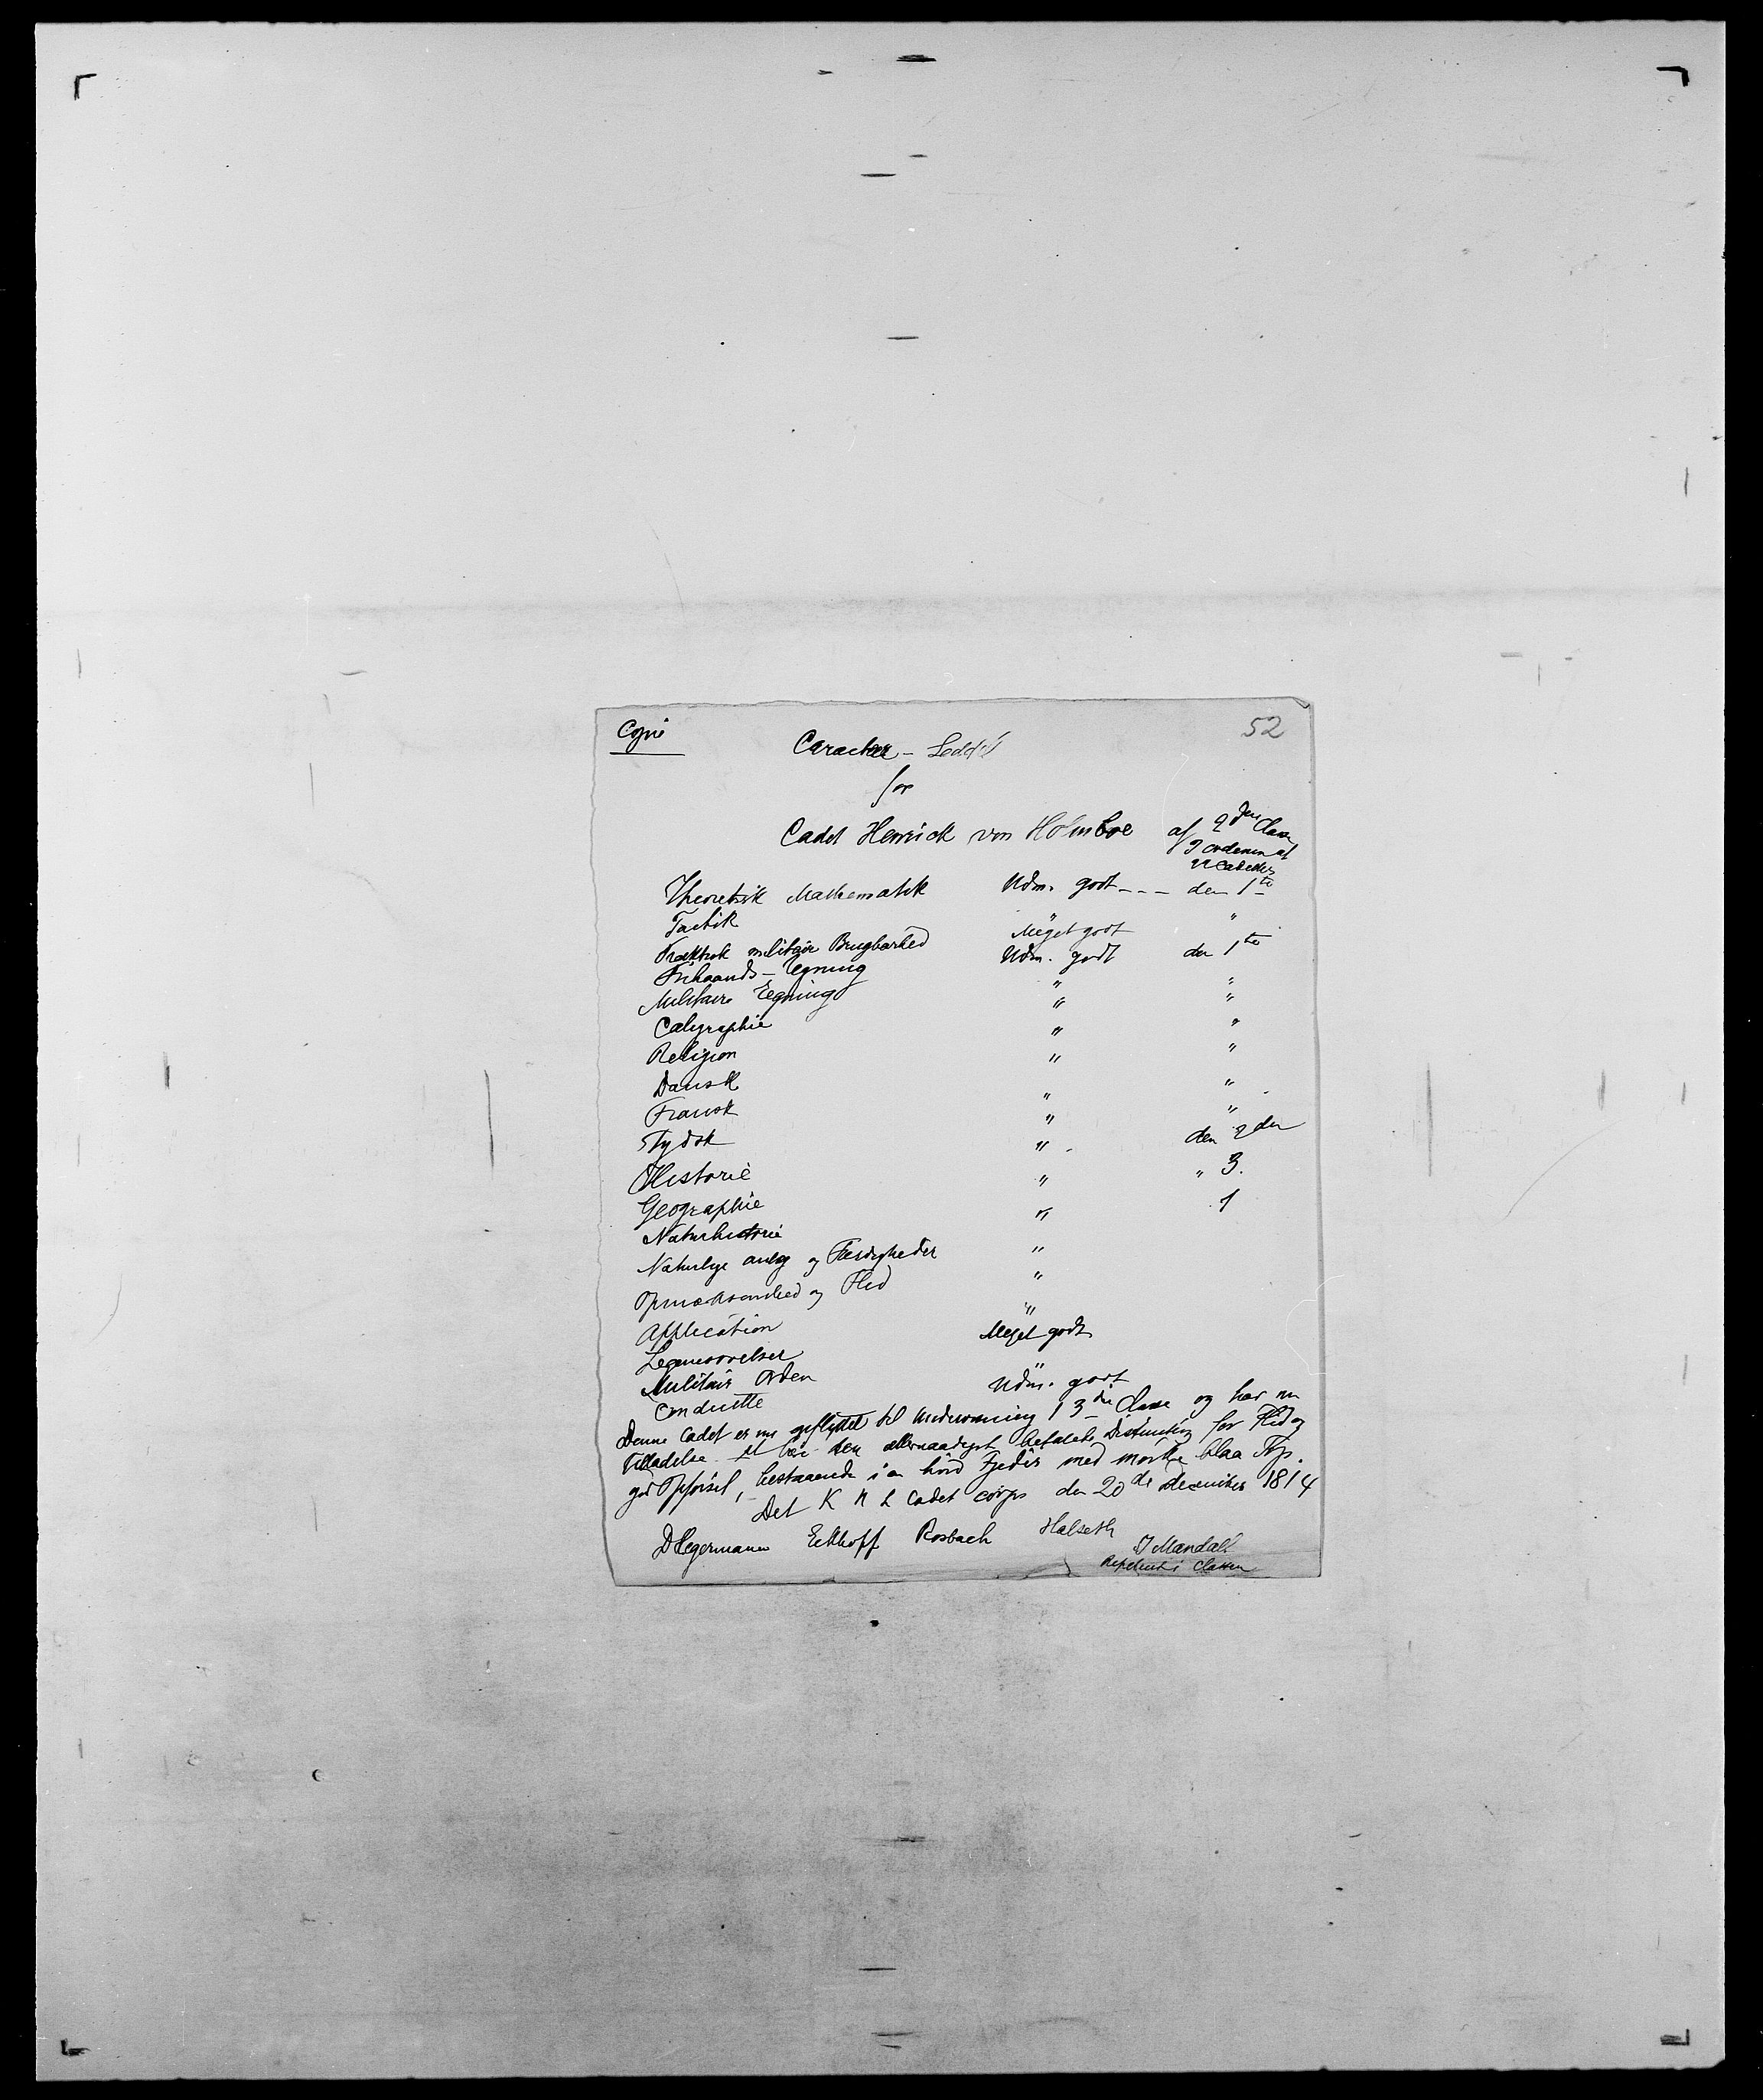 Copie
52
Caracteer – Seddel
for
Cadet Henrick von Holmboe af 2den Classe
I ordenen af
22 Cadetter
Theoretisk Mathematik Udm. godt --- den 1te
Tactik " "
Practisk militair Brugbarhed Meget godt
Frihaands-Tegning Udm. godt den 1te
Militaire Tegning " "
Caligraphie " "
Religion " "
Dansk " "
Fransk " "
Tydsk " "
Historie " den 2den
Geographie " " 3.
Naturhistorie " 1
Naturlige anlæg og Færdigheder "
Opmærksomhed og Flid "
Application "
Legemsøvelser Meget godt
Militair Orden "
Conduitte Udm. godt
Denne Cadet er nu opflyttet til Underviisning i 3die Classe og har nu
Tilladelse at bære den allernaadigst befalede Distinction for Flid og
god Opførsel, bestaaende i en hvid Fjeder med mørke blaa Top.
Det K N L Cadet corps den 20de december 1814
D Hegermann Eckhoff Rosbach Halseth
J Mandall
Repetent i Classen